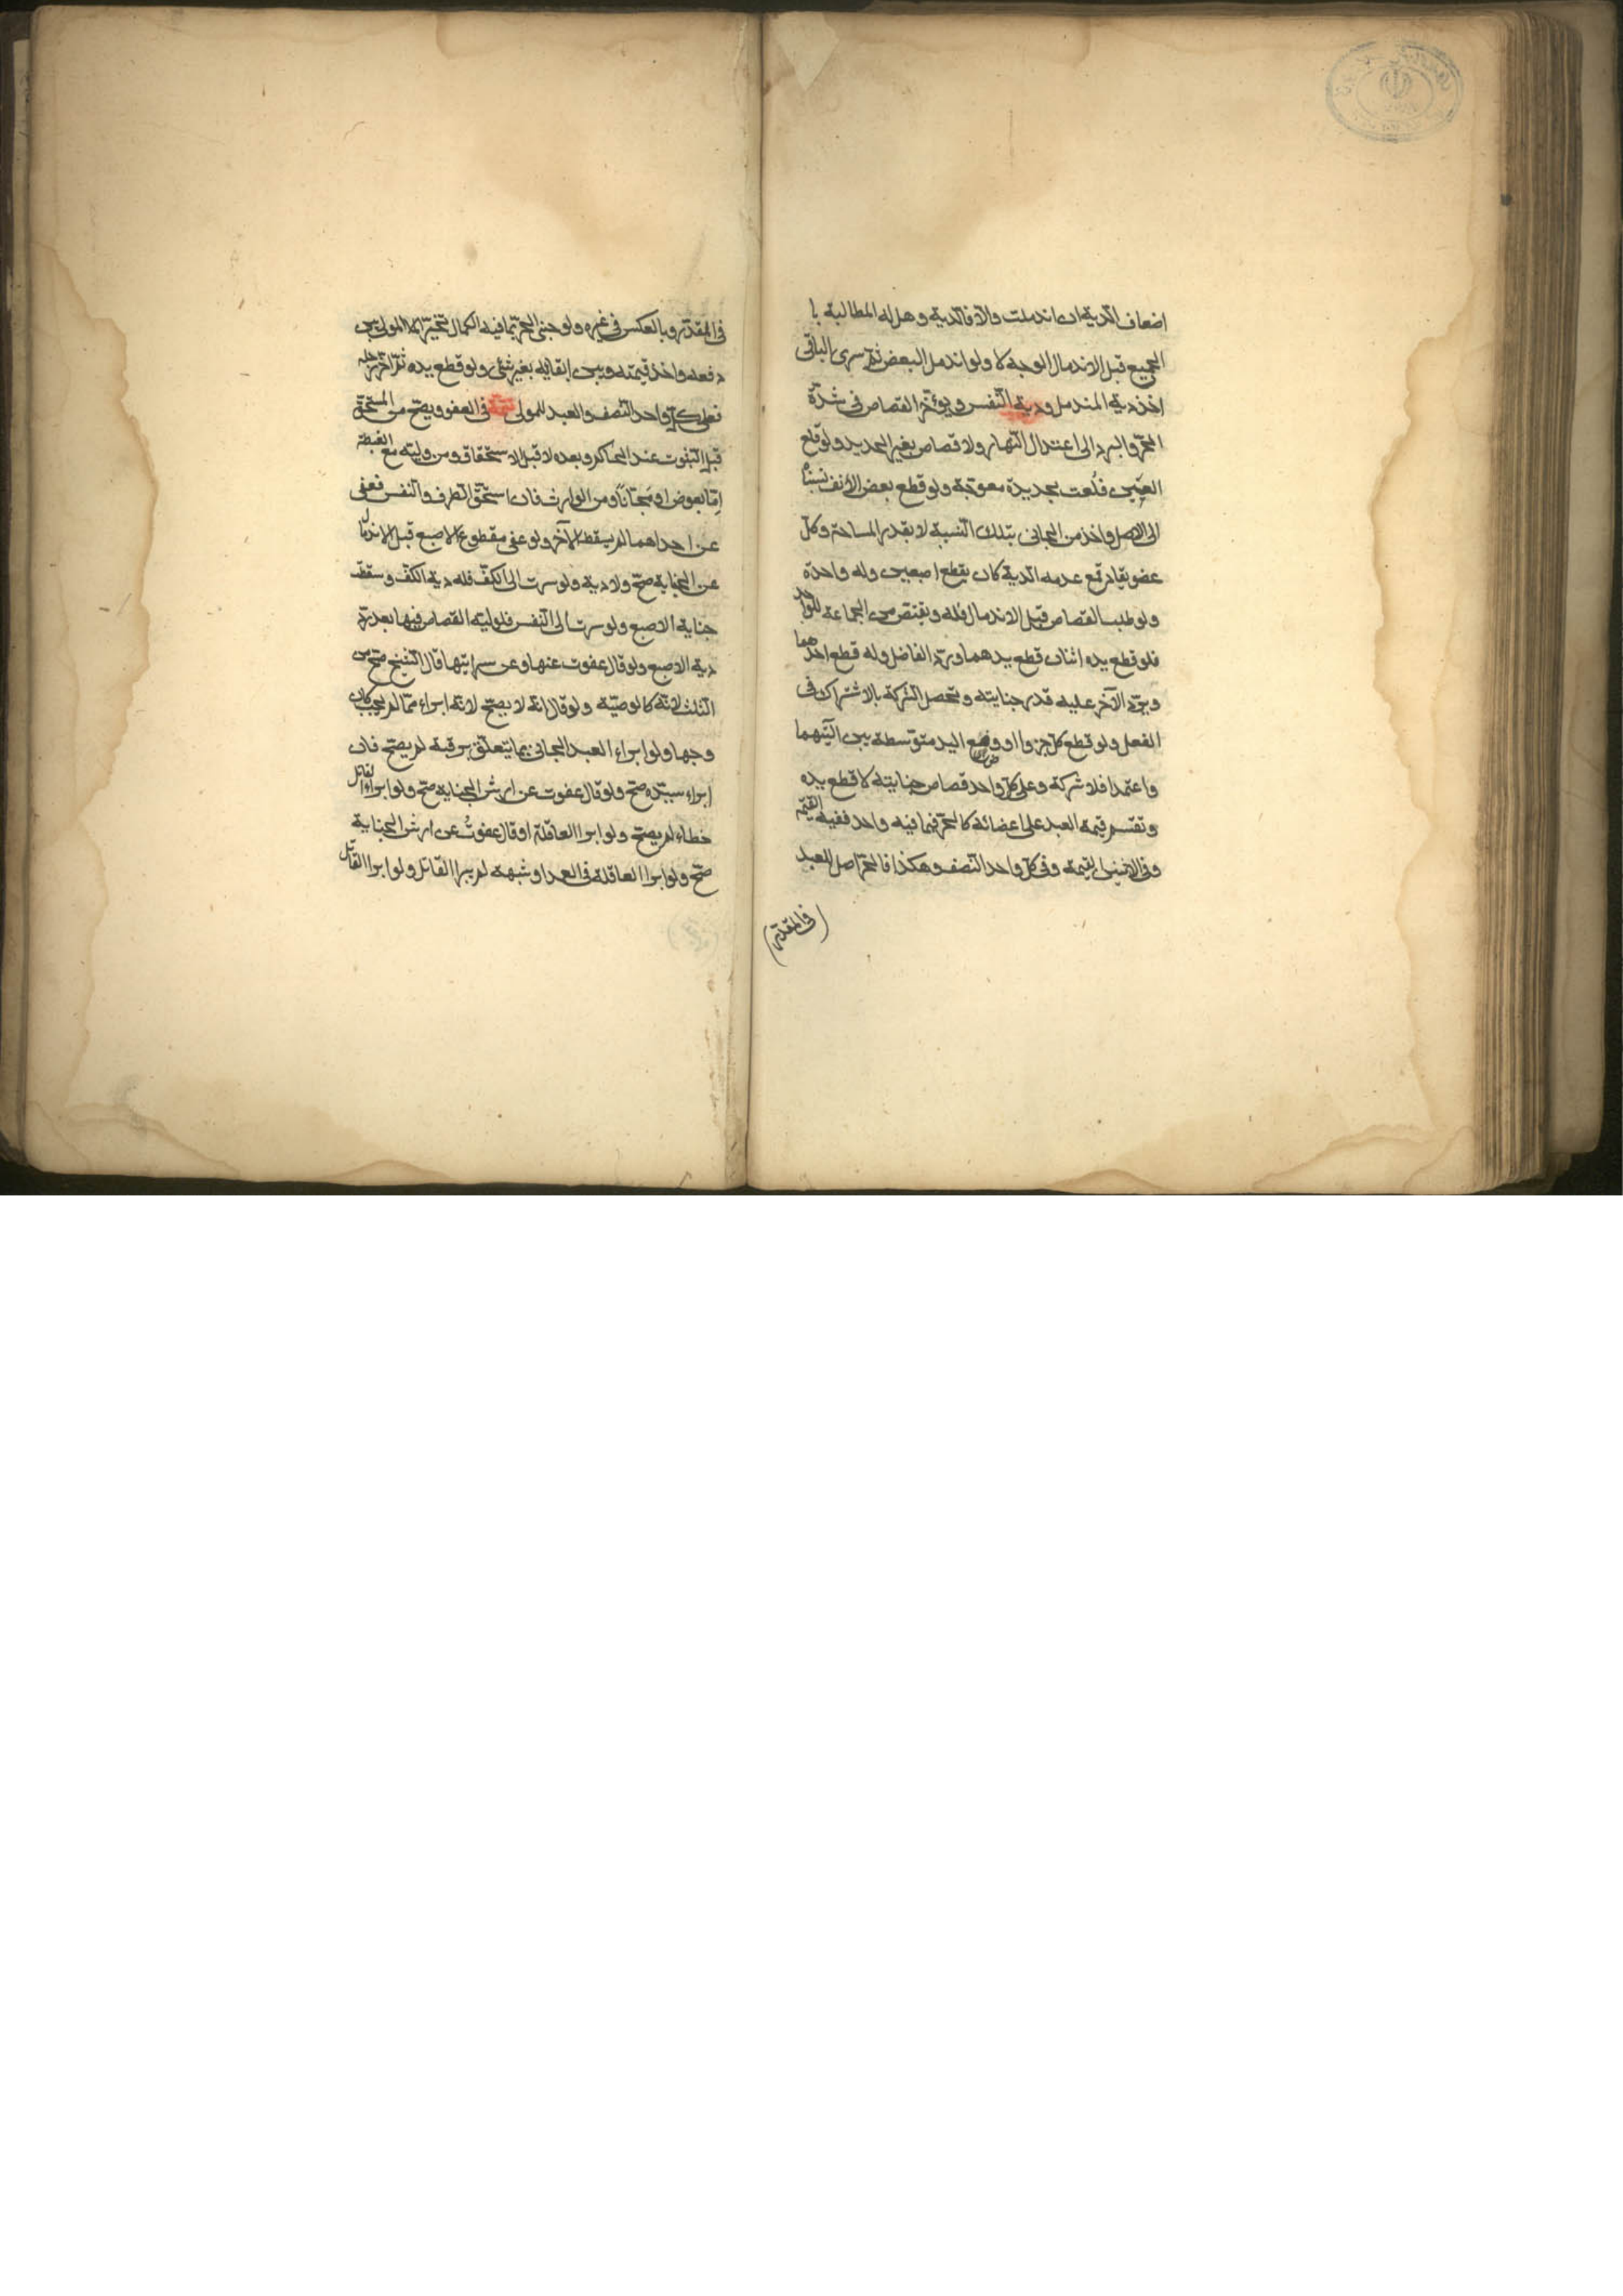 اضعاف الدية ان اندملت والا فالدية وهل له المطالبة با
لجميع قبل الاندمال الوجه لا ولو اندمل البعض ثم سرى الباقى
اخذ دية المندمل ودية النفس ويؤخر القصاص فى شدة
الحر والبرد الى اعتدال النهار ولا قصاص بغير الحديد ولو قلع
العين قلعت بحديدة معوجة ولو قطع بعض الانف نسبناه
الى الاصل واخذ من الجانى بتلك النسبة لا بقدر المساحة وكل
عضو يقاد مع عدمه الدية كان يقطع اصبعين وله واحدة
ولو طلب القصاص قبل الاندمال فله ويقتص من الجماعة للواحد
فلو قطع يده اثنان قطع يدهما ويرد الفاضل وله قطع احدهما
ويرد الآخر عليه قدر جنايته وتحصل الشركة بالاشتراك فى
الفعل ولو قطع كل جزوا او وضع اليد متوسطة بين آلتيهما
واعتمدا فلا شركة وعلى كل واحد قصاص جنايته لا قطع يده
وتقسم قيمة العبد على اعضائه كالحر فما فيه واحد ففيه القيمة
وفى الاثنين القيمة وفى كل واحد النصف وهكذا فالحر اصل للعبد
فى المقدر
فى المقدر وبالعكس فى غيره ولو جنى الحر بما فيه الكمال تخير المولى بين
دفعه واخذ قيمته وبين ابقائه بغير شئ ولو قطع يده ثم آخر رجله
فعلى كل واحد النصف والعبد للمولى تتمة فى العفو ويصح من المستحق
قبل الثبوت عند الحاكم وبعده لا قبل الاستحقاق ومن وليه مع الغبطة
اما بعوض او مجانا ومن الوارث فان استحق الطرف والنفس فعفى
عن احدهما لم يسقط الآخر ولو عفى مقطوع الاصبع قبل الاندمال
عن الجناية صح ولا دية ولو سرت الى الكف فله دية الكف وسقط
جناية الاصبع ولو سرت الى النفس فلوليه القصاص فيها بعد رد
دية الاصبع ولو قال عفوت عنها وعن سرايتها قال الشيخ صح من
الثلث لانه كالوصية ولو قال انه لا يصح لانه ابراء مما لم يجب كان
وجها ولو ابراء العبد الجانى بما يتعلق برقبة لم يصح فان
ابراء سيده صح ولو قال عفوت عن ارش الجناية صح ولو ابراء القاتل
خطاء لم يصح ولو ابرا العاقلة او قال عفوت عن ارش الجناية
صح ولو ابرا العاقلة فى العمد او شبهه لم يبرا القاتل ولو ابرا القاتل